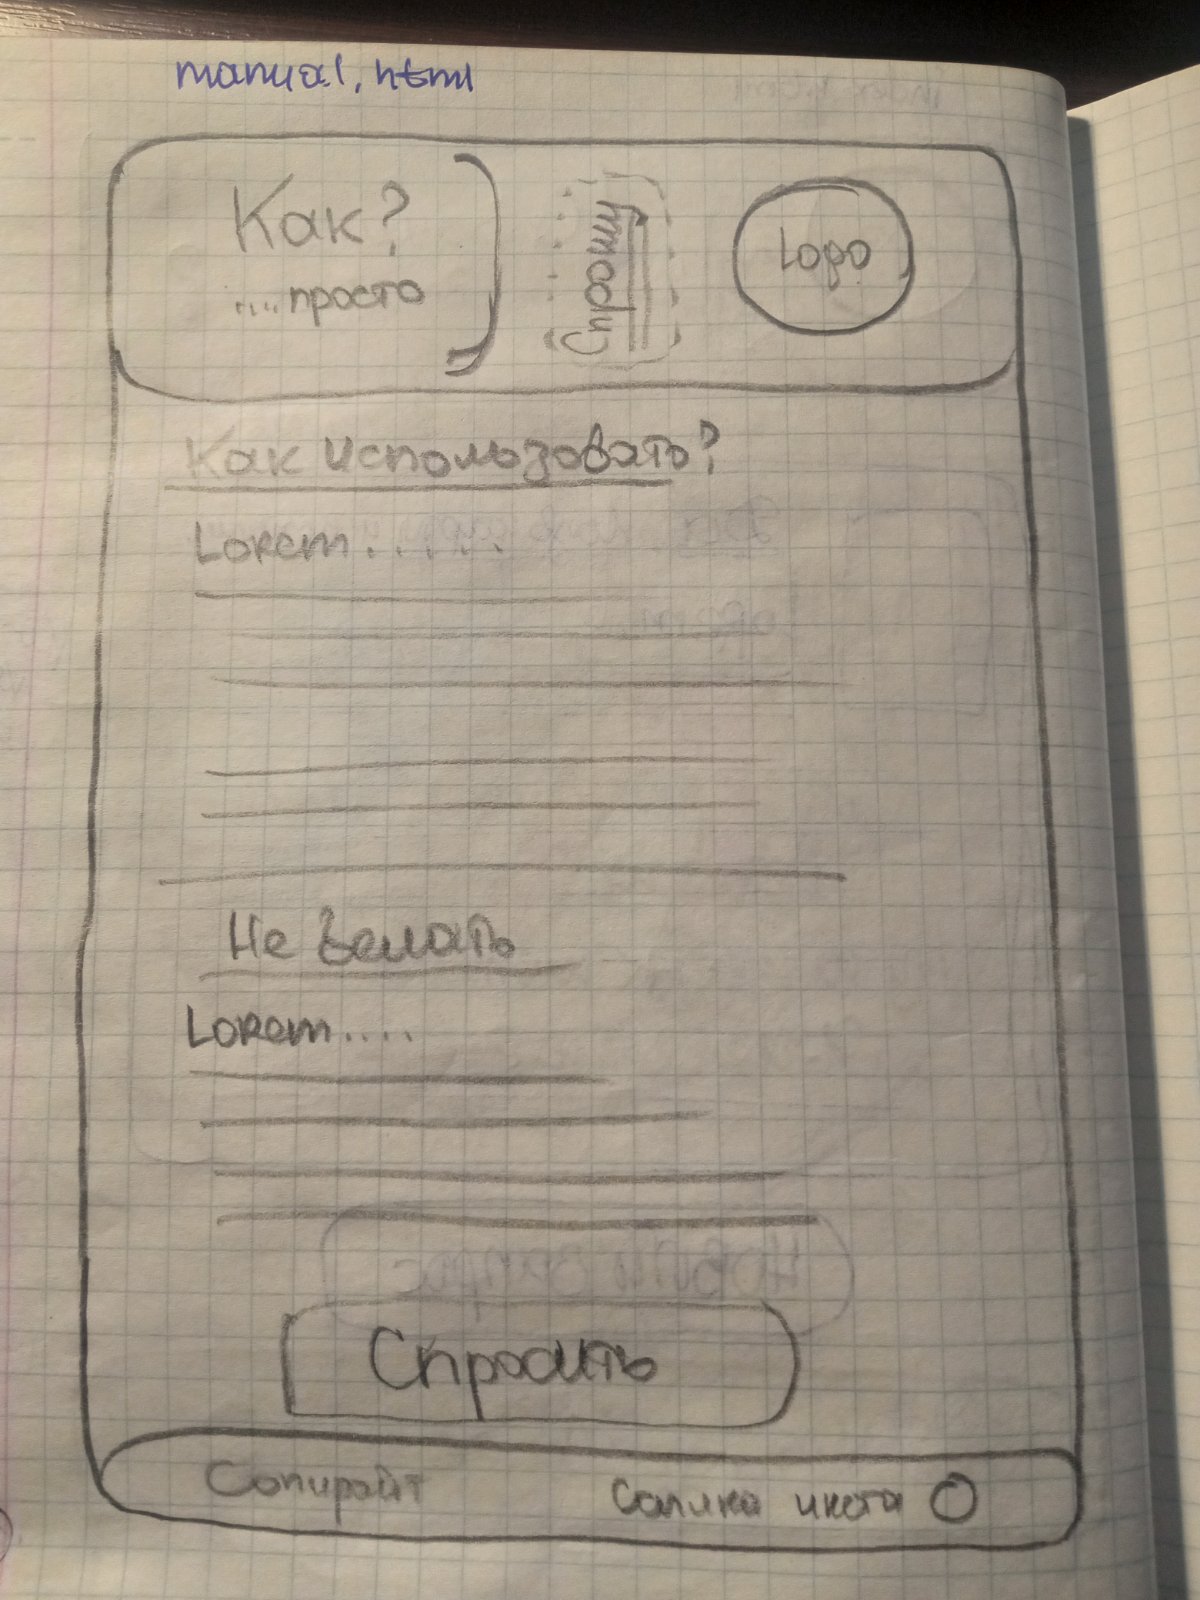 manual.html
Как?
....просто
Спрошу
Logo
Как использовать?
Lorem......
Не делать
Lorem....
Спросить
Сопирайт